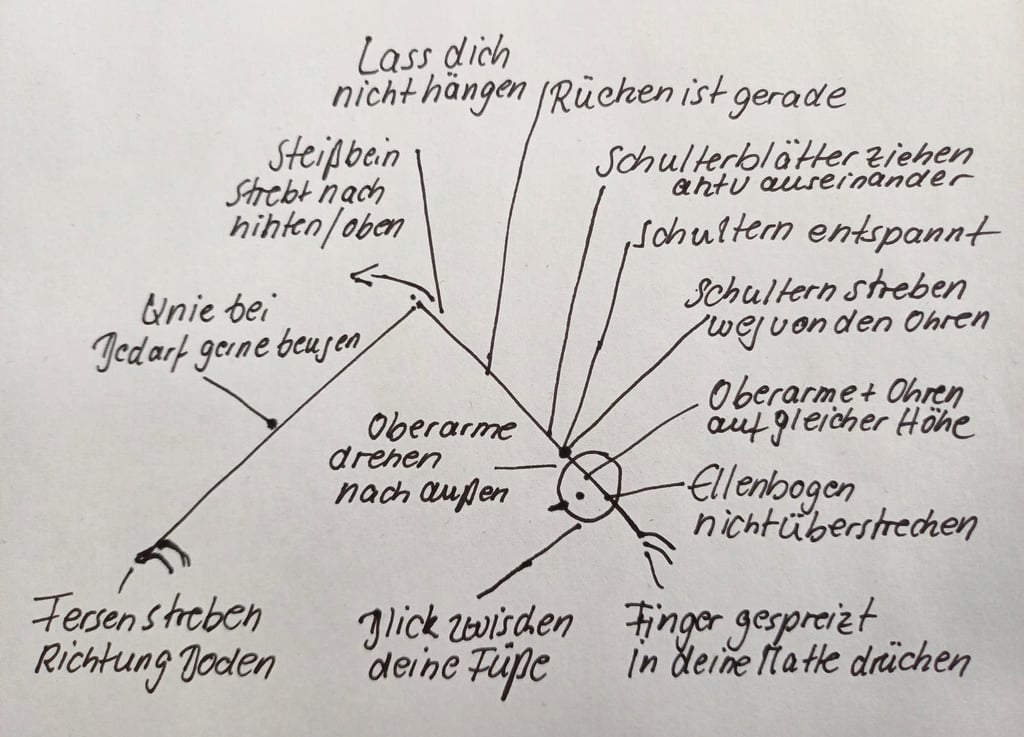 Lass dich
nicht hängen
Rücken ist gerade
Steißbein
strebt nach
hinten/oben
Schulterblätter ziehen
aktiv auseinander
Schultern entspannt
Schultern streben
weg von den Ohren
Knie bei
Bedarf gerne beugen
Oberarme + Ohren
auf gleicher Höhe
Oberarme
drehen
nach außen
Ellenbogen
nicht überstrecken
Fersen streben
Richtung Boden
Blick zwischen
deine Füße
Finger gespreizt
in deine Matte drücken